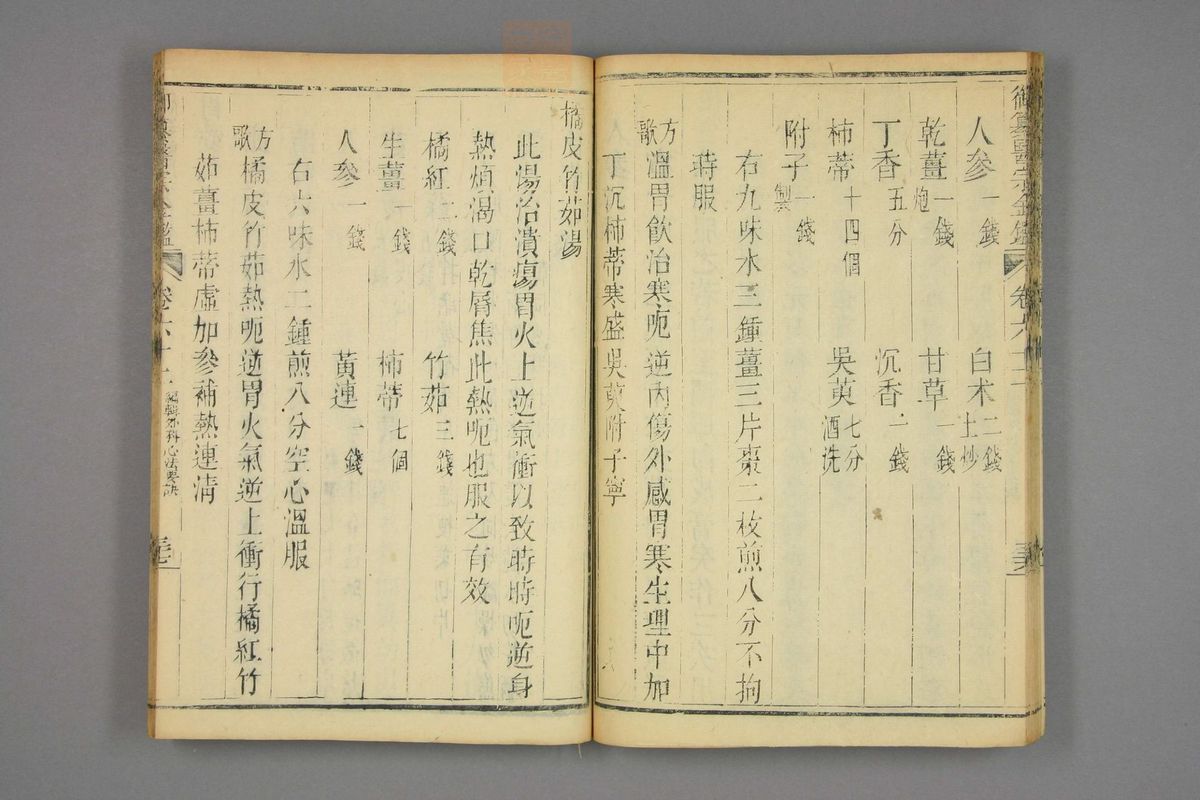 御纂醫宗金鑑 卷六十二
人參一錢 白朮二錢土炒
乾薑一錢炮 甘草一錢
丁香五分 沉香一錢
柿蒂十四個 吳茱七分酒洗
附子一錢製
右九味水三鍾薑三片棗二枚煎八分不拘
時服
方歌 溫胃飲治寒呃逆內傷外感胃寒生理中加
丁沉柿蒂寒盛吳茱附子寧
橘皮竹茹湯
此湯治潰瘍胃火上逆氣衝以致時時呃逆身
熱煩渴口乾唇焦此熱呃也服之有效
橘紅二錢 竹茹三錢
生薑一錢 柿蒂七個
人參一錢 黃連一錢
右六味水二鍾煎八分空心溫服
方歌 橘皮竹茹熱呃逆胃火氣逆上衝行橘紅竹
茹薑柿蒂虛加參補熱連清
卷六十二 編輯外科心法要訣